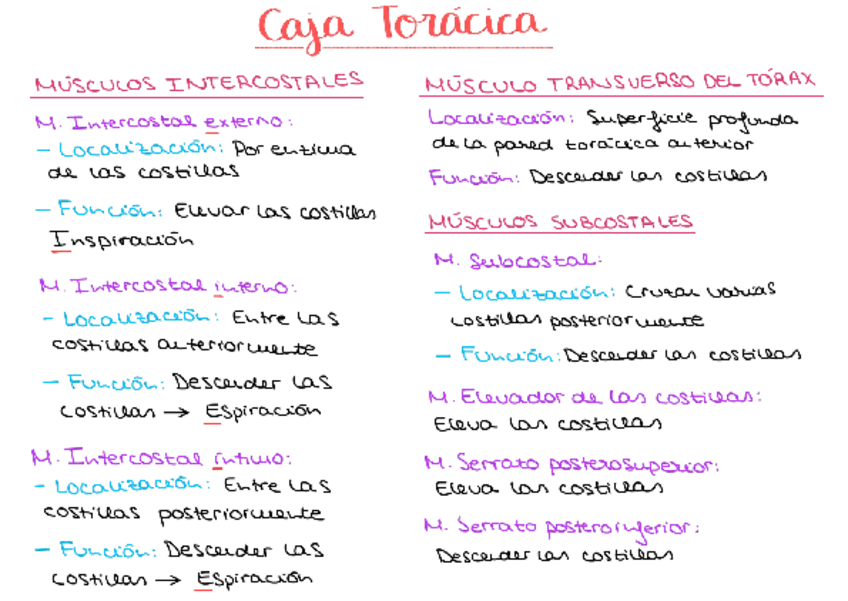 Caja Torácica
MÚSCULOS INTERCOSTALES
M. Intercostal externo:
- Localización: Por encima
de las costillas
- Función: Elevar las costillas
Inspiración
M. Intercostal interno:
- Localización: Entre las
costillas anteriormente
- Función: Descender las
costillas → Espiración
M. Intercostal íntimo:
- Localización: Entre las
costillas posteriormente
- Función: Descender las
costillas → Espiración
MÚSCULO TRANSVERSO DEL TÓRAX
Localización: Superficie profunda
de la pared torácica anterior
Función: Descender las costillas
MÚSCULOS SUBCOSTALES
M. Subcostal:
- Localización: Cruzar varias
costillas posteriormente
- Función: Descender las costillas
M. Elevador de las costillas:
Eleva las costillas
M. Serrato posterosuperior:
Eleva las costillas
M. Serrato posteroinferior:
Descender las costillas